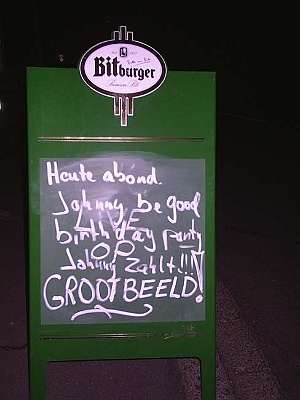 Bitburger
Premium Pils
Heute abond.
Johnny be good
LIVE
birthday party
OP
Johnny Zahlt!!!
GROOTBEELD!